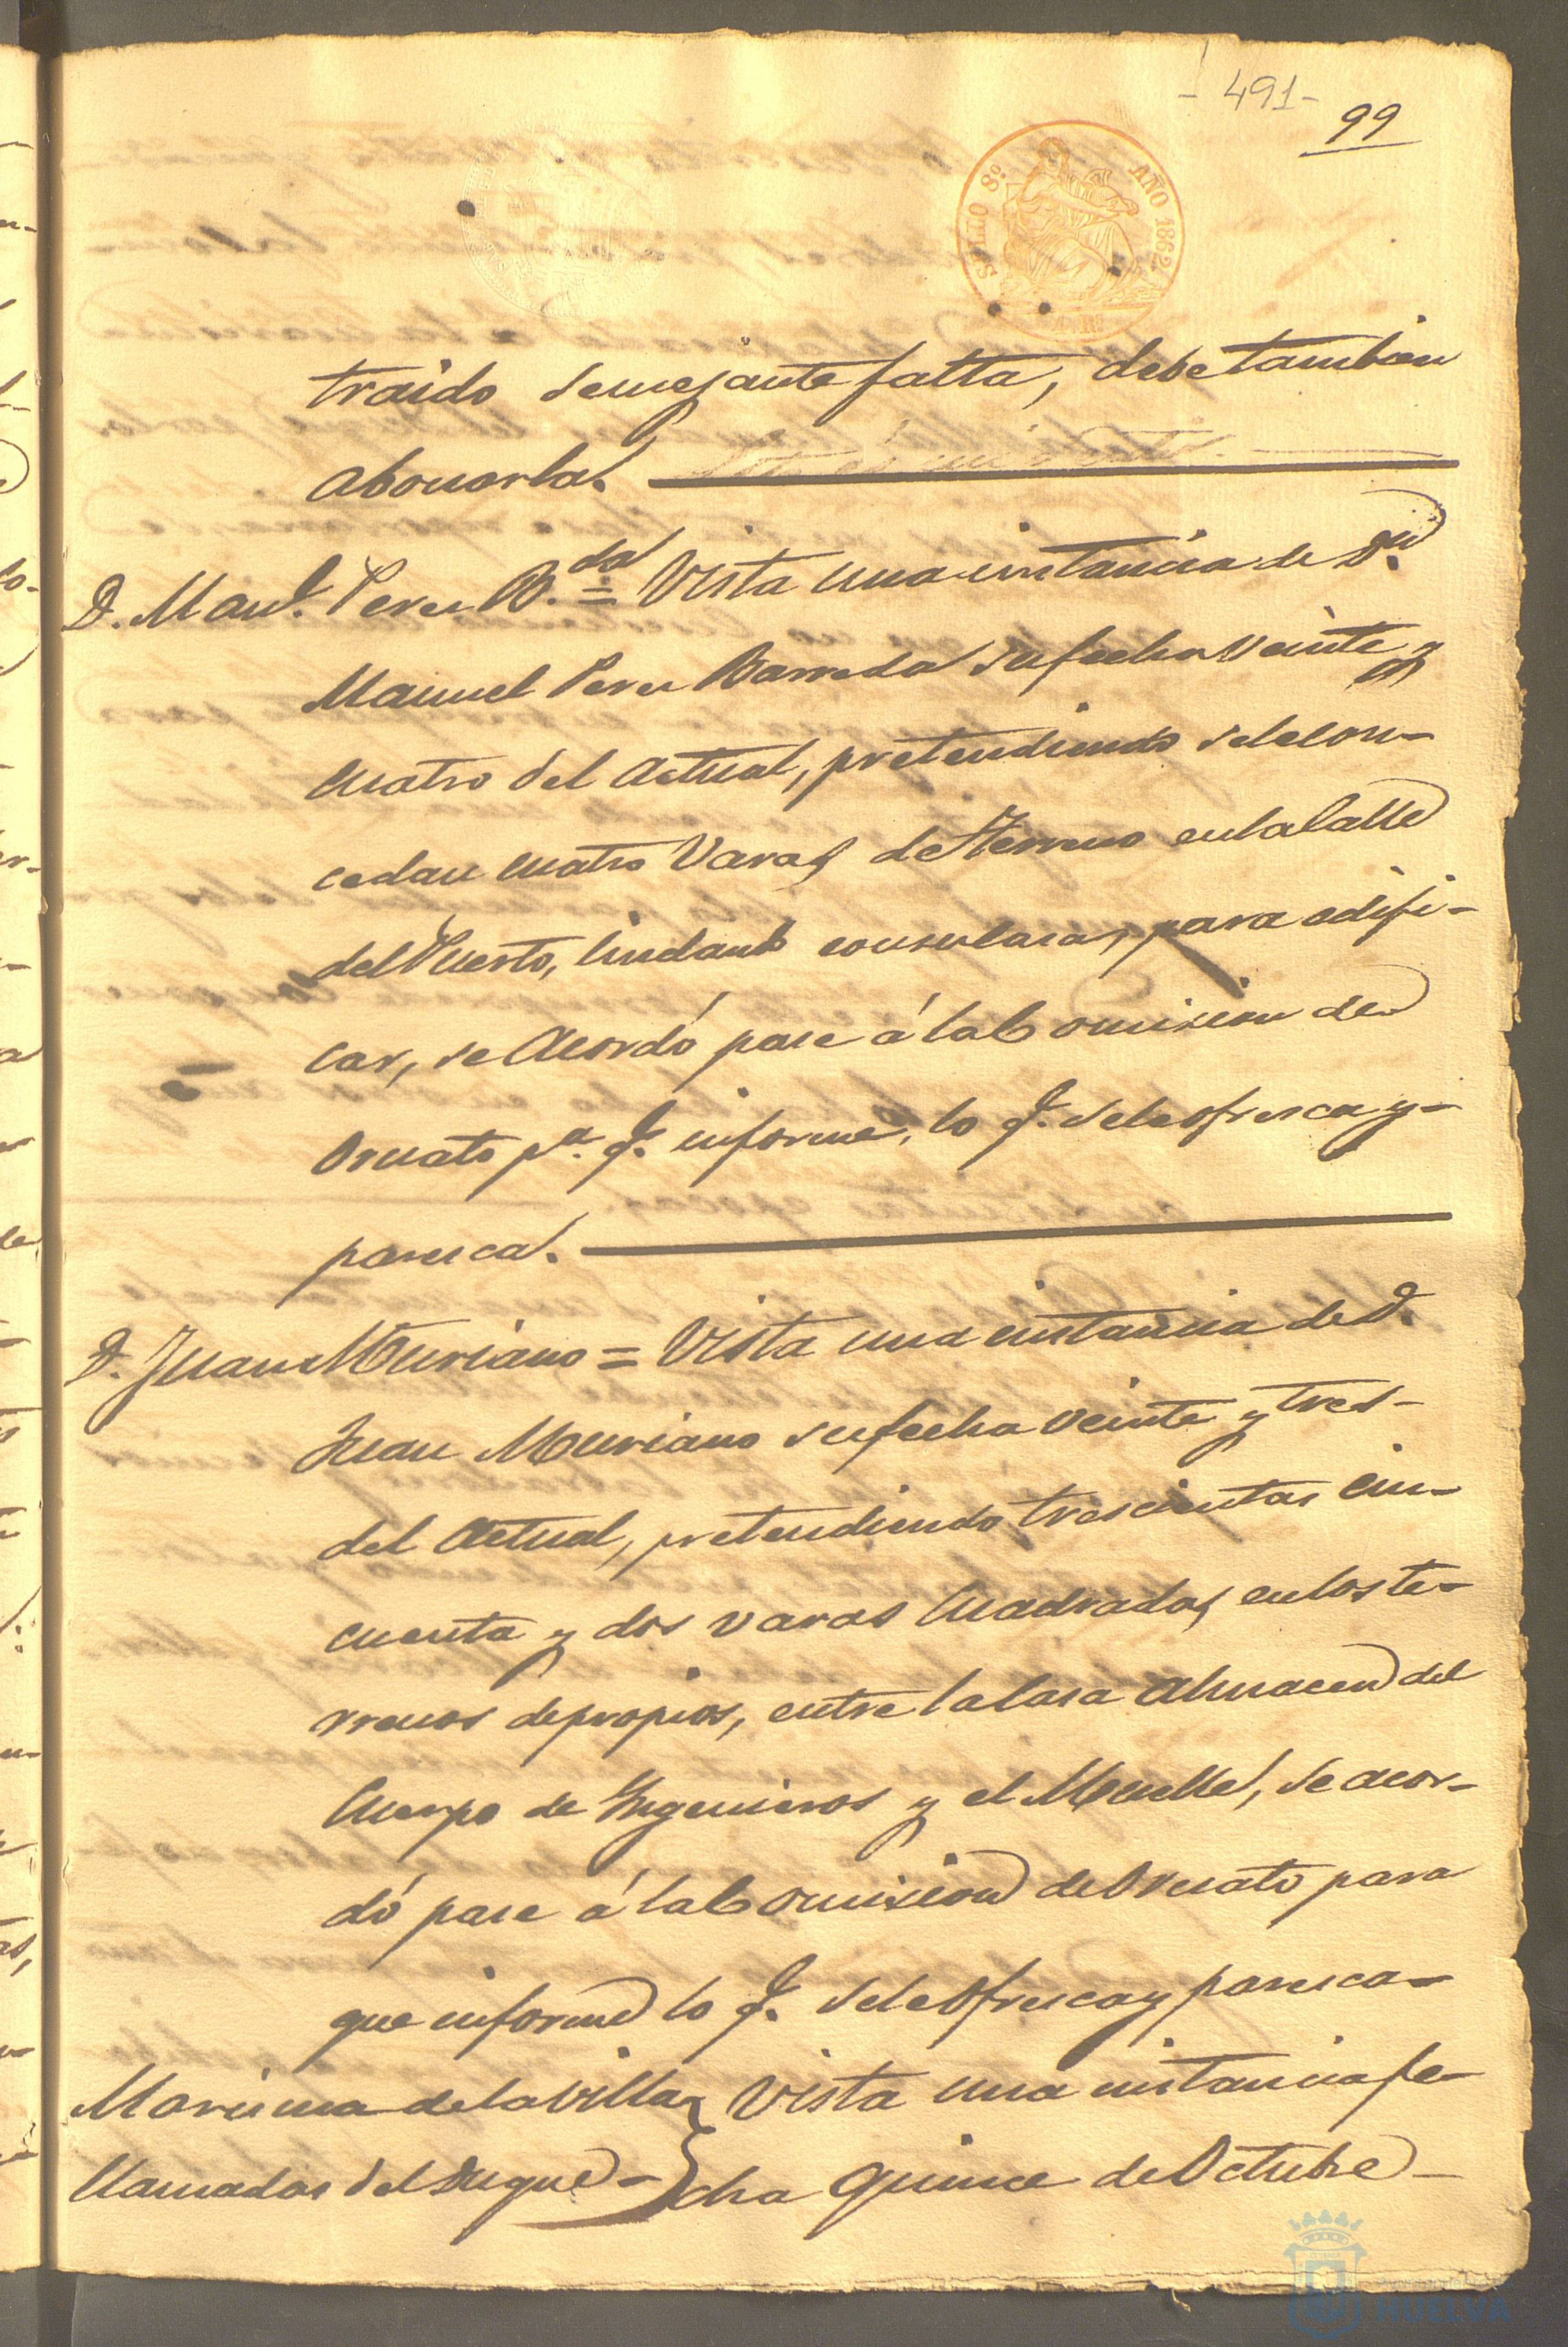 - 491-
99
SELLO 8º AÑO 1862
traido semejante falta, debe tambien
abonarla.
D. Manl. Perez B.da = Vista una instancia de Dn.
Manuel Perez Barreda su fecha veinte y
cuatro del actual, pretendiendo se le con-
cedan cuatro varas de terreno en la Calle
del Puerto, lindante con su casa, para edifi-
car, se acordó pase á la Comision de
Ornato pa. q. informe, lo q. se le ofresca y-
paresca.
D. Juan Muriano = Vista una instancia de D.
Juan Muriano su fecha veinte y tres-
del actual, pretendiendo trescientas cin-
cuenta y dos varas cuadradas en los te-
rrenos de propios, entre la Casa Almacen del
Cuerpo de Ingenieros y el Muelle, se acor-
dó pase á la Comision de Ornato para
que informe lo q. se le ofresca y paresca-
Marisma de la Villa Vista una instancia fe-
llamadas del Duque - cha quince de Octubre -
HUELVA